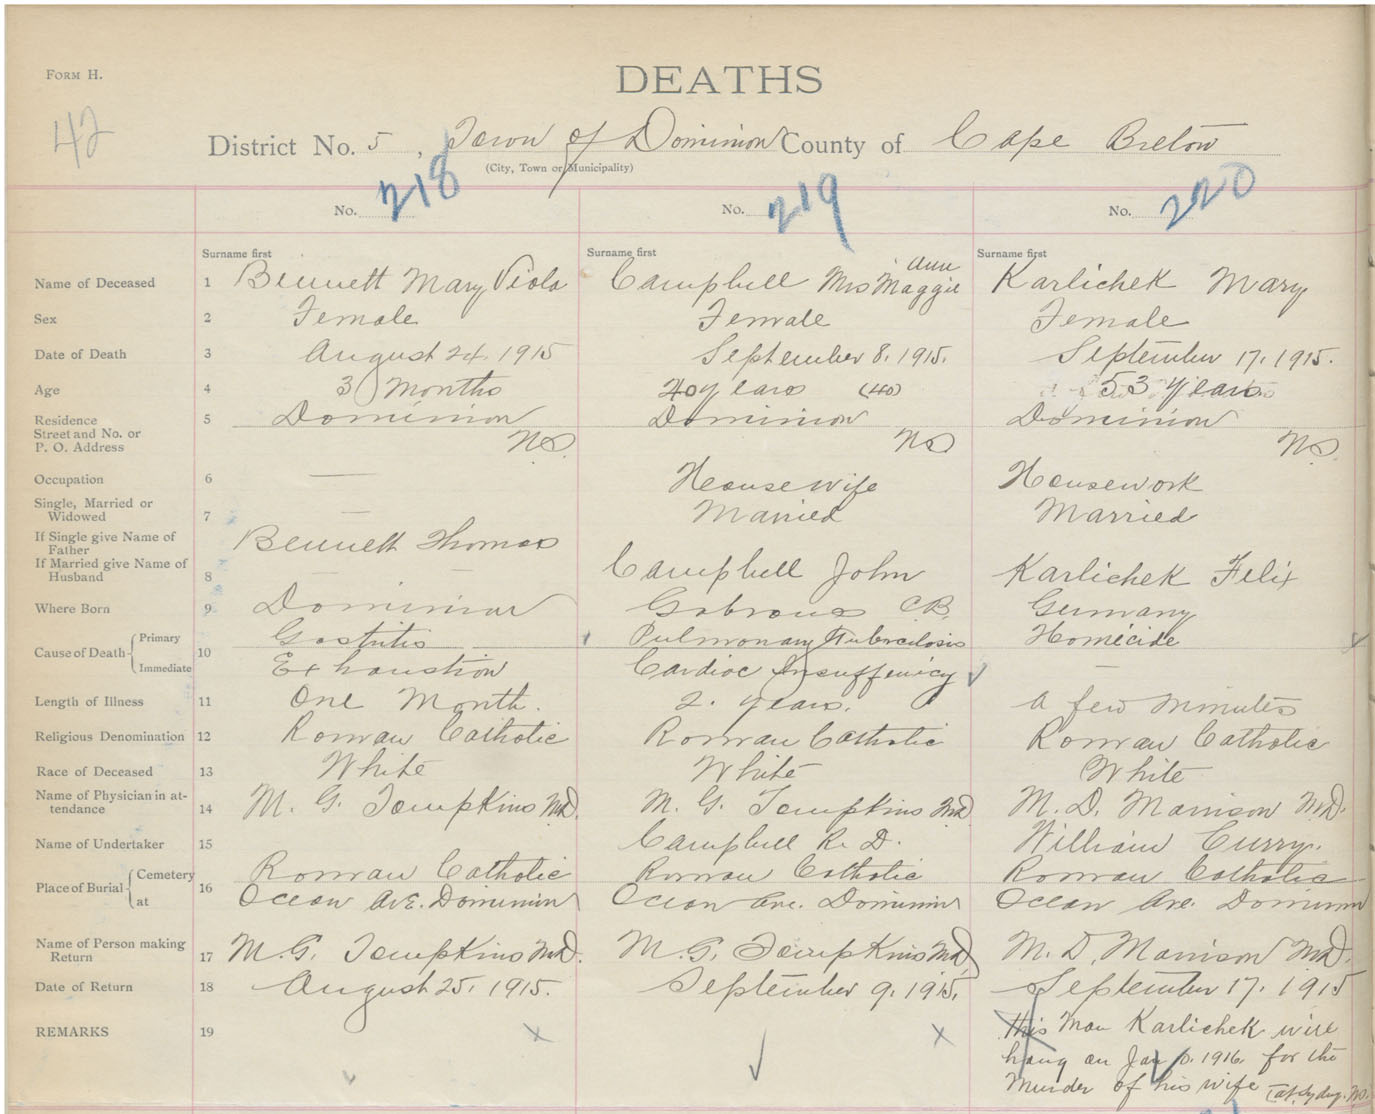 FORM H.
DEATHS
42
District No. 5, Town of Dominion County of Cape Breton
(City, Town or Municipality)
No. 218 No. 219 No. 220
Surname first Surname first Surname first
Ann
Name of Deceased 1 Bennett Mary Viola Campbell Mrs Maggie Karlichek Mary
Sex 2 Female Female Female
Date of Death 3 August 24. 1915 September 8. 1915. September 17. 1915.
Age 4 3 Months 40 years (40) 53 years
Residence 5 Dominion Dominion Dominion
Street and No. or
P. O. Address N.S. NS N.S.
Occupation 6 — Housewife Housework
Single, Married or
Widowed 7 — Married Married
If Single give Name of
Father Bennett Thomas
If Married give Name of
Husband 8 — — Campbell John Karlichek Felix
Where Born 9 Dominion Gabrous CB. Germany
Cause of Death Primary 10 Gastritis Pulmonary Tuberculosis Homicide
Immediate Exhaustion Cardiac Insuffenicy —
Length of Illness 11 One Month. 2. years. a few minutes
Religious Denomination 12 Roman Catholic Roman Catholic Roman Catholic
Race of Deceased 13 White White White
Name of Physician in at-
tendance 14 M. G. Tompkins MD. M. G. Tompkins MD M. D. Morrison M.D.
Name of Undertaker 15 Campbell R. D. William Curry.
Place of Burial Cemetery 16 Roman Catholic Roman Catholic Roman Catholic
at Ocean Ave. Dominion Ocean Ave. Dominion Ocean Ave. Dominion
Name of Person making
Return 17 M. G. Tompkins MD. M. G. Tompkins MD M. D. Morrison MD.
Date of Return 18 August 25. 1915. September 9. 1915. September 17. 1915
REMARKS 19 this Man Karlichek will
hang on Jan 1916. for the
Murder of his wife (at Sydney. NS.